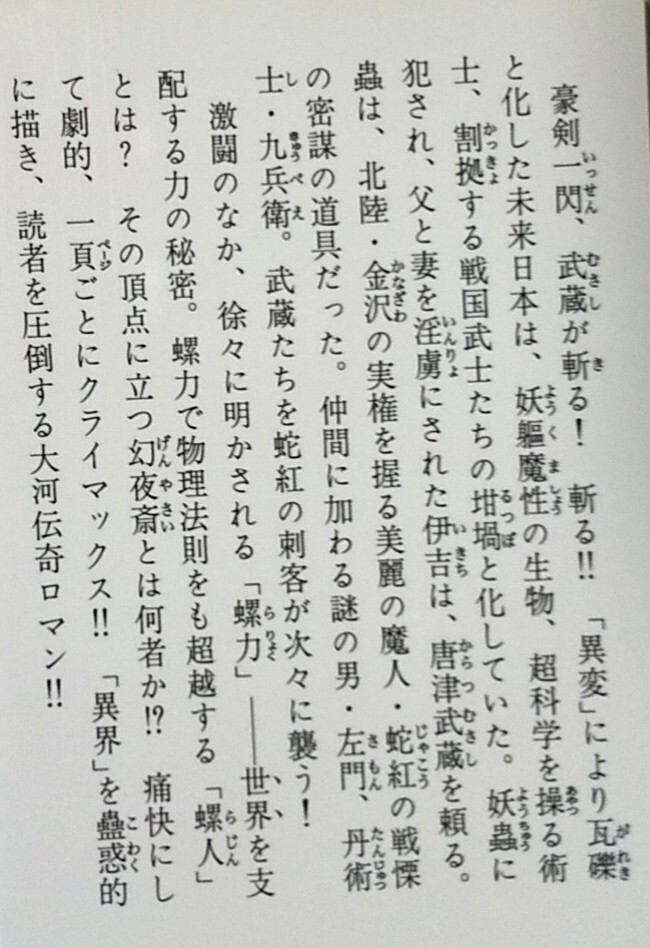 豪剣一閃、武蔵が斬る！　斬る!!　「異変」により瓦礫
と化した未来日本は、妖軀魔性の生物、超科学を操る術
士、割拠する戦国武士たちの坩堝と化していた。妖蟲に
犯され、父と妻を淫虜にされた伊吉は、唐津武蔵を頼る。
蟲は、北陸・金沢の実権を握る美麗の魔人・蛇紅の戦慄
の密謀の道具だった。仲間に加わる謎の男・左門、丹術
士・九兵衛。武蔵たちを蛇紅の刺客が次々に襲う！
激闘のなか、徐々に明かされる「螺力」――世界を支
配する力の秘密。螺力で物理法則をも超越する「螺人」
とは？　その頂点に立つ幻夜斎とは何者か!?　痛快にし
て劇的、一頁ごとにクライマックス!!　「異界」を蠱惑的
に描き、読者を圧倒する大河伝奇ロマン!!